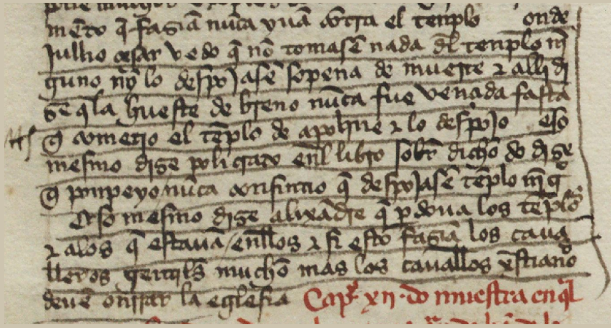 mẽto q̃ fazia nũca yuã cõtra el tenplo onde
Julio çesar vedo q̃ nõ tomasẽ nada dl̃ tenplo nĩ
guno nĩ lo despojasẽ sopena de muerte ⁊ alli di
zẽ q̃ la hueste de breno nũca fue vençida fasta
q̃ cometio el tẽplo de apoline ⁊ lo despojo eso
mesmo dize policrato enl̃ libro sobr̃ dicho do dize
q̃ ponpeyo nũca consintio q̃ despojasẽ tẽplo nĩg
eso mesmo dize alixãdre q̃ p̃dona los tẽplos
⁊ alos q̃ estauã enellos ⁊ si esto faziã los caua
lleros gentiles mucho mas los cauallos x̃stianos
deuẽ onrrar la eglesia Cap̃o xii do muestra en q̃l